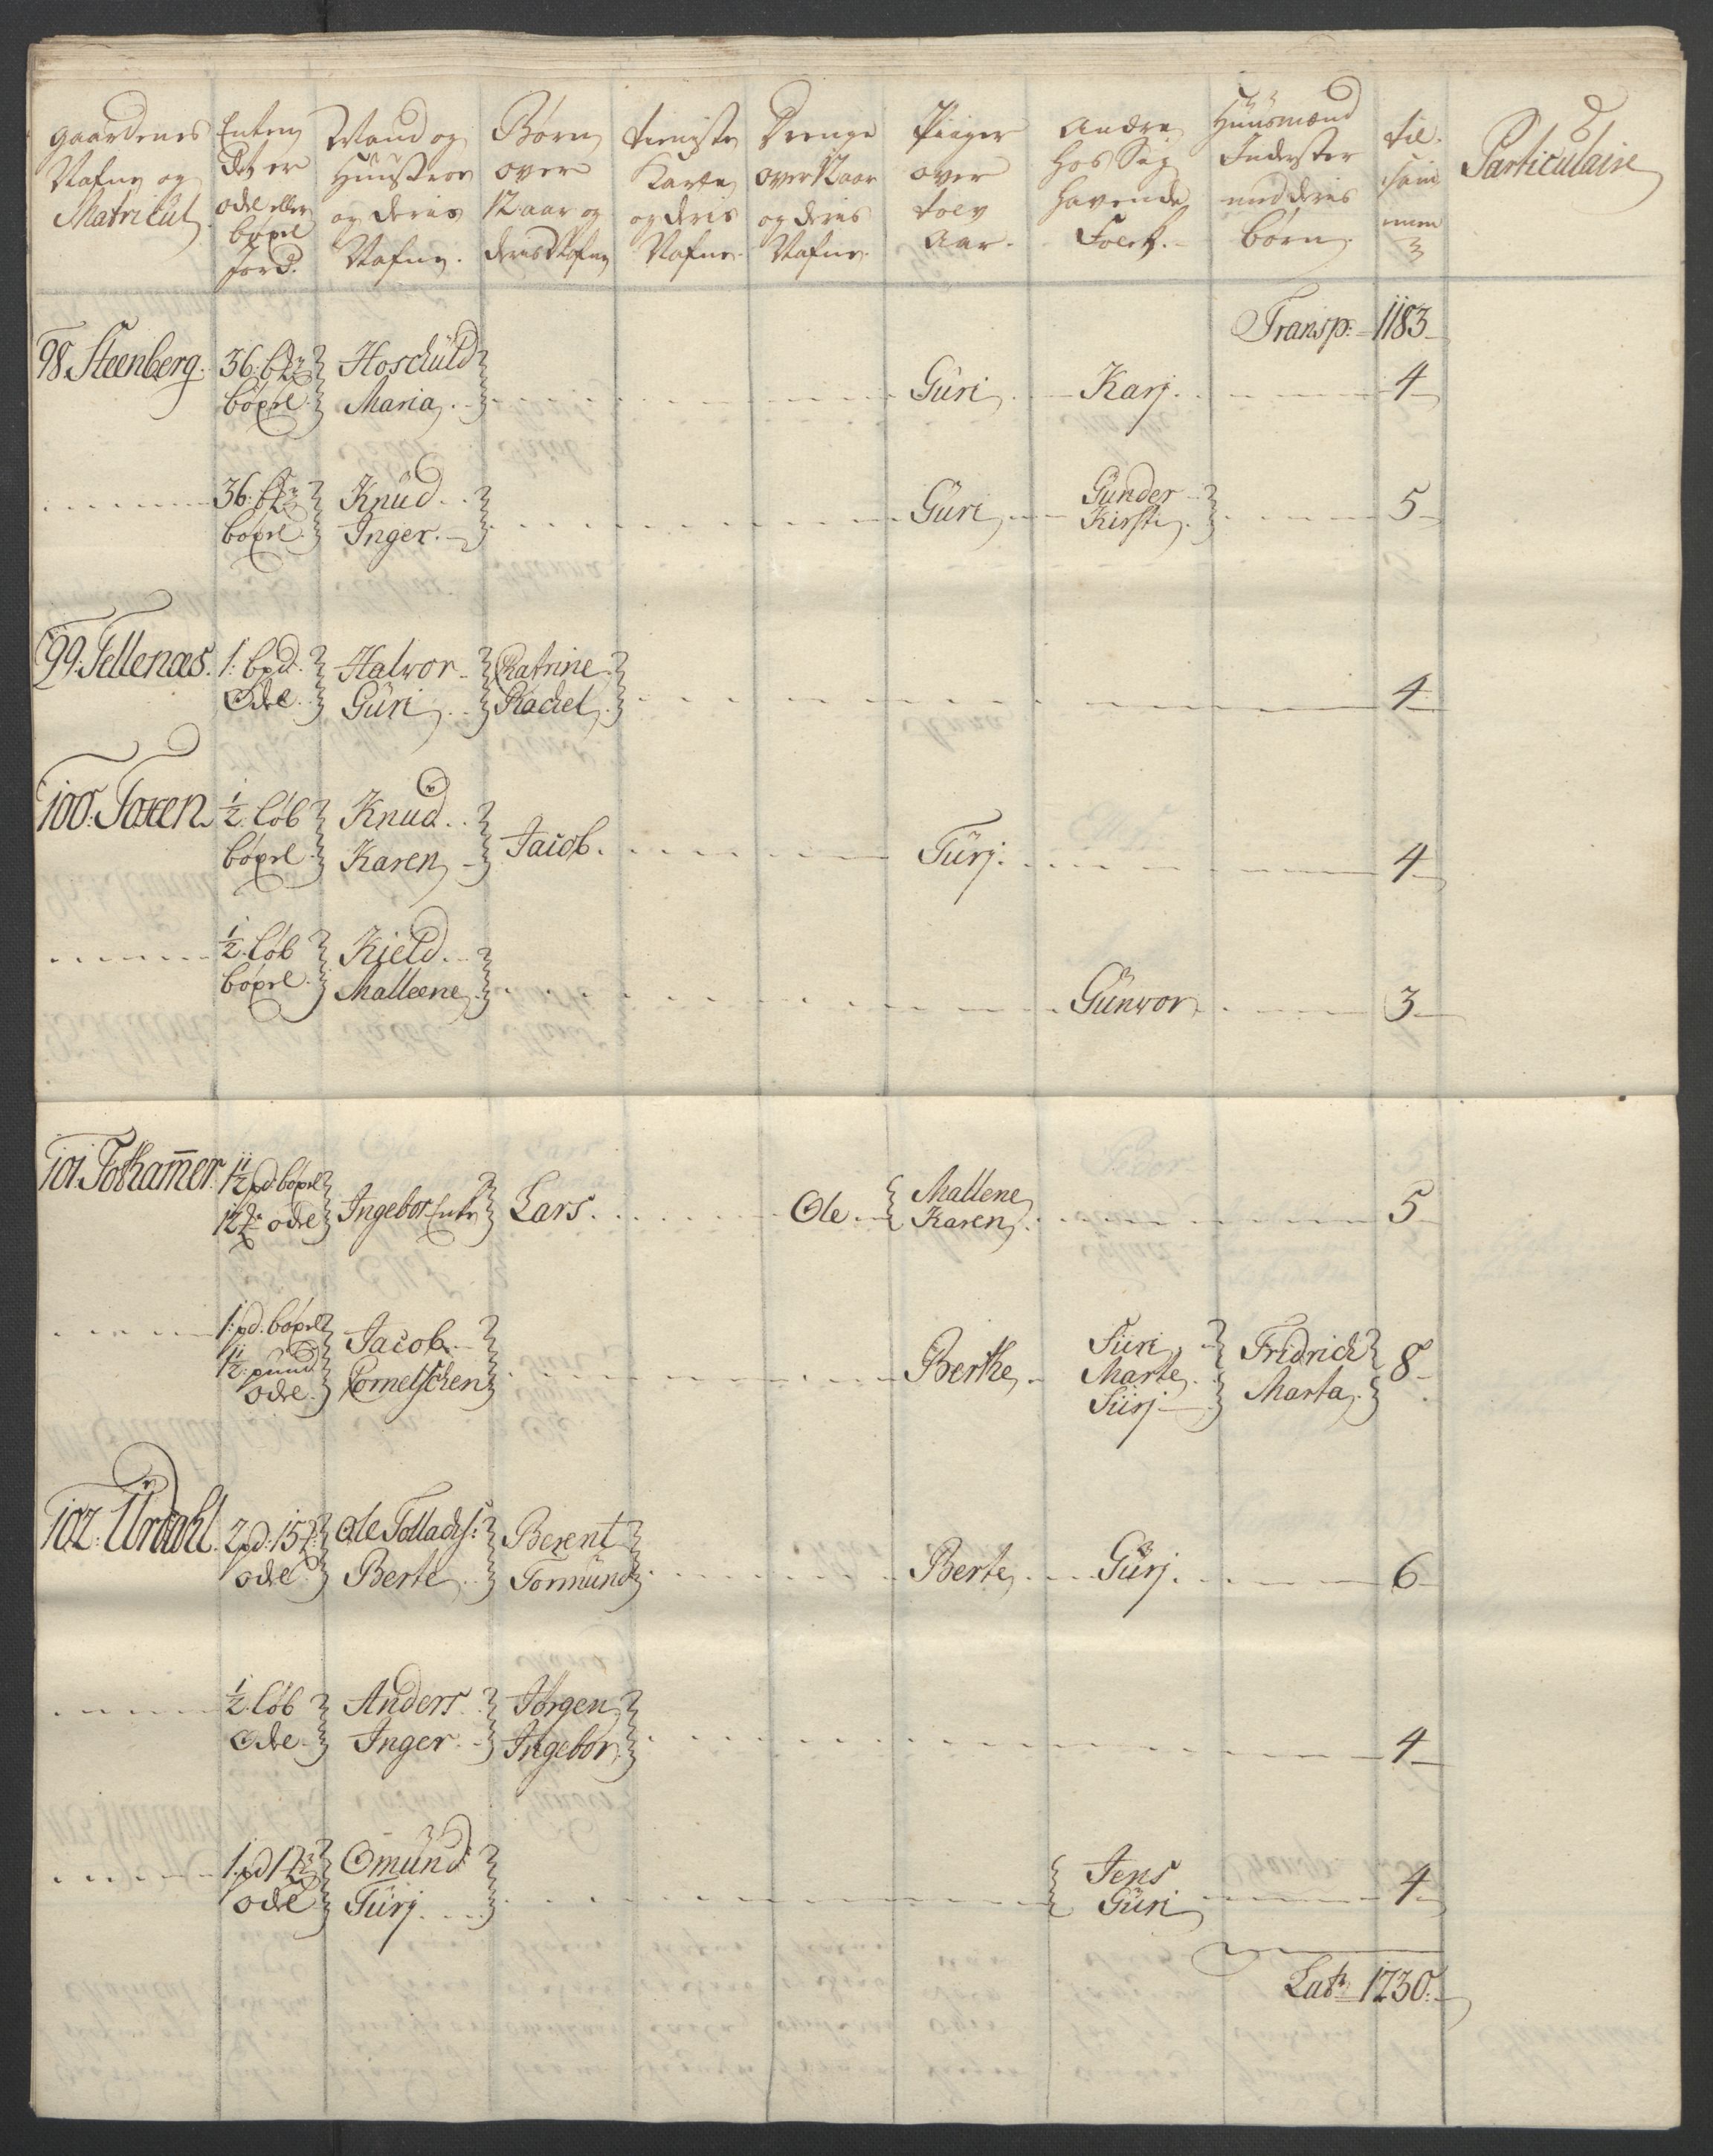 Gaardenes Nafne og Matricul
Enten Det er odel eller böxel Jord.
Mand og Huustroe og deris Nafne.
Børn over 12 aar og deris Nafne
tieniste Karle og deris Nafne.
Drenge over 12 aar og deris Nafne.
Piiger over tolv Aar.
Andre hos Sig havende Folck.
Huusmænd Inderster med deris børn.
til sam men
Particulaire
Transp: 1183
98. Steenberg. 36. böxel Hoschüld Maria. Güri Karj. 4
36. böxel Knüd Inger. Güri Günder Kirsti 5
99. Tellenæs. 1. bpd. Odel Halvor Güri Catrine Rachel 4
100. Toxen ½ löb böxel Knüd Karen Jacob. Türj. 4
½ löb böxel Kield Malleene Günvor 3
101. Totham̄er. 1½ pd böxel 12 odel Ingebor Enke Lars. Ole Mallene Karen 5
1. pd. böxel 1½ pund odel Jacob Cornelschen Berthe Siiri Marte Siirj Fridrich Marta 8
102. Ürdahl. 2 pd: 15 odel Ole Tolladhs: Berte Berent Tormünd Berte Gürj. 6
½ löb Odel Anders Inger Jörgen Ingebor 4
1. pd 12 odel Omünd Türj Jens Güri 4
Latr 1230.